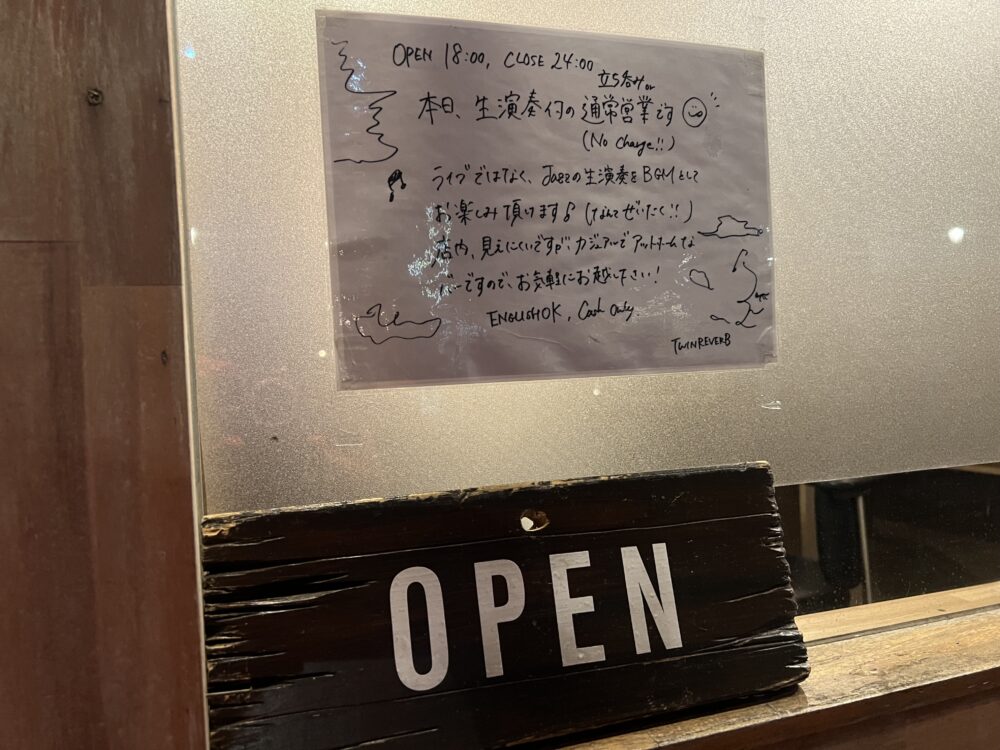 OPEN 18:00, CLOSE 24:00
立ち呑み or
本日、生演奏付の通常営業です
(No charge!!)
ライブではなく、Jazzの生演奏をBGMとして
お楽しみ頂けます♪ (なんてぜいたく!!)
店内、見えにくいですが、カジュアルでアットホームな
バーですので、お気軽にお越し下さい!
ENGLISH OK, Cash only.
TWINREVERB
OPEN